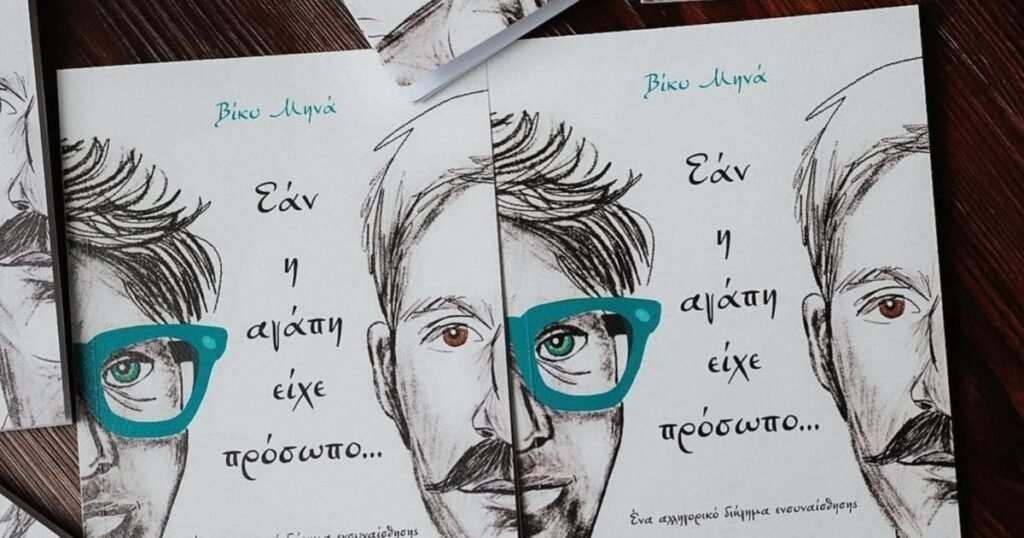 Βίκυ Μηνά
Εάν
η
αγάπη
είχε
πρόσωπο...
διήγημα ενσυναίσθησης
Βίκυ Μηνά
Εάν
η
αγάπη
είχε
πρόσωπο...
Ένα αλληγορικό διήγημα ενσυναίσθησης